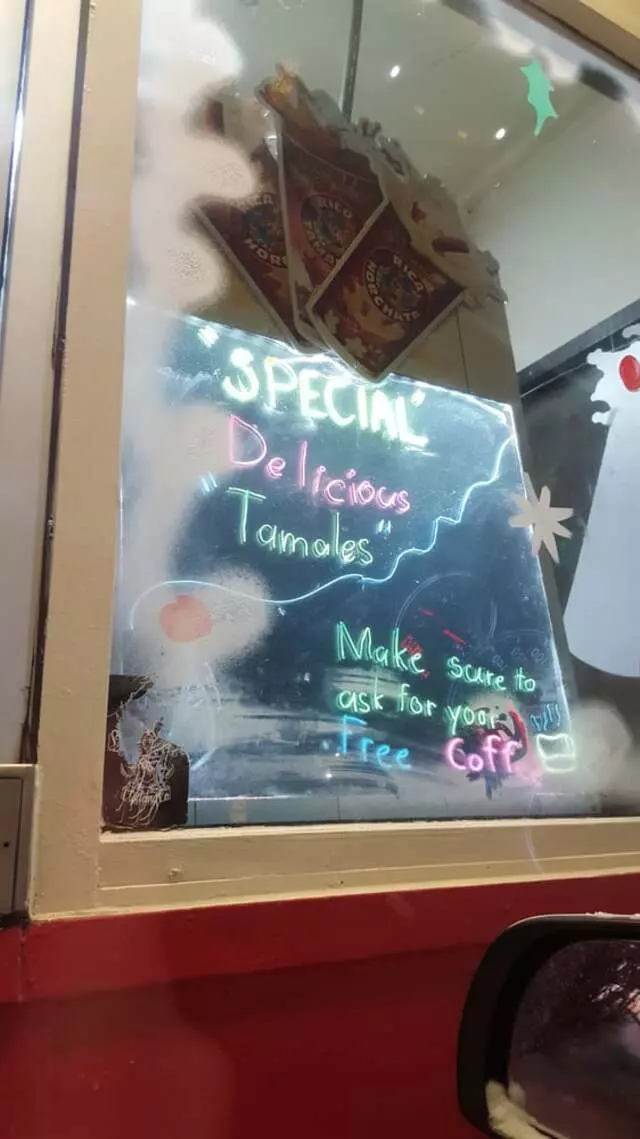 RICA
HOR
RICO
TAMA
RICA
HORCHATA
"SPECIAL"
Delicious
"Tamales"
Make sure to
ask for your
Free Coff